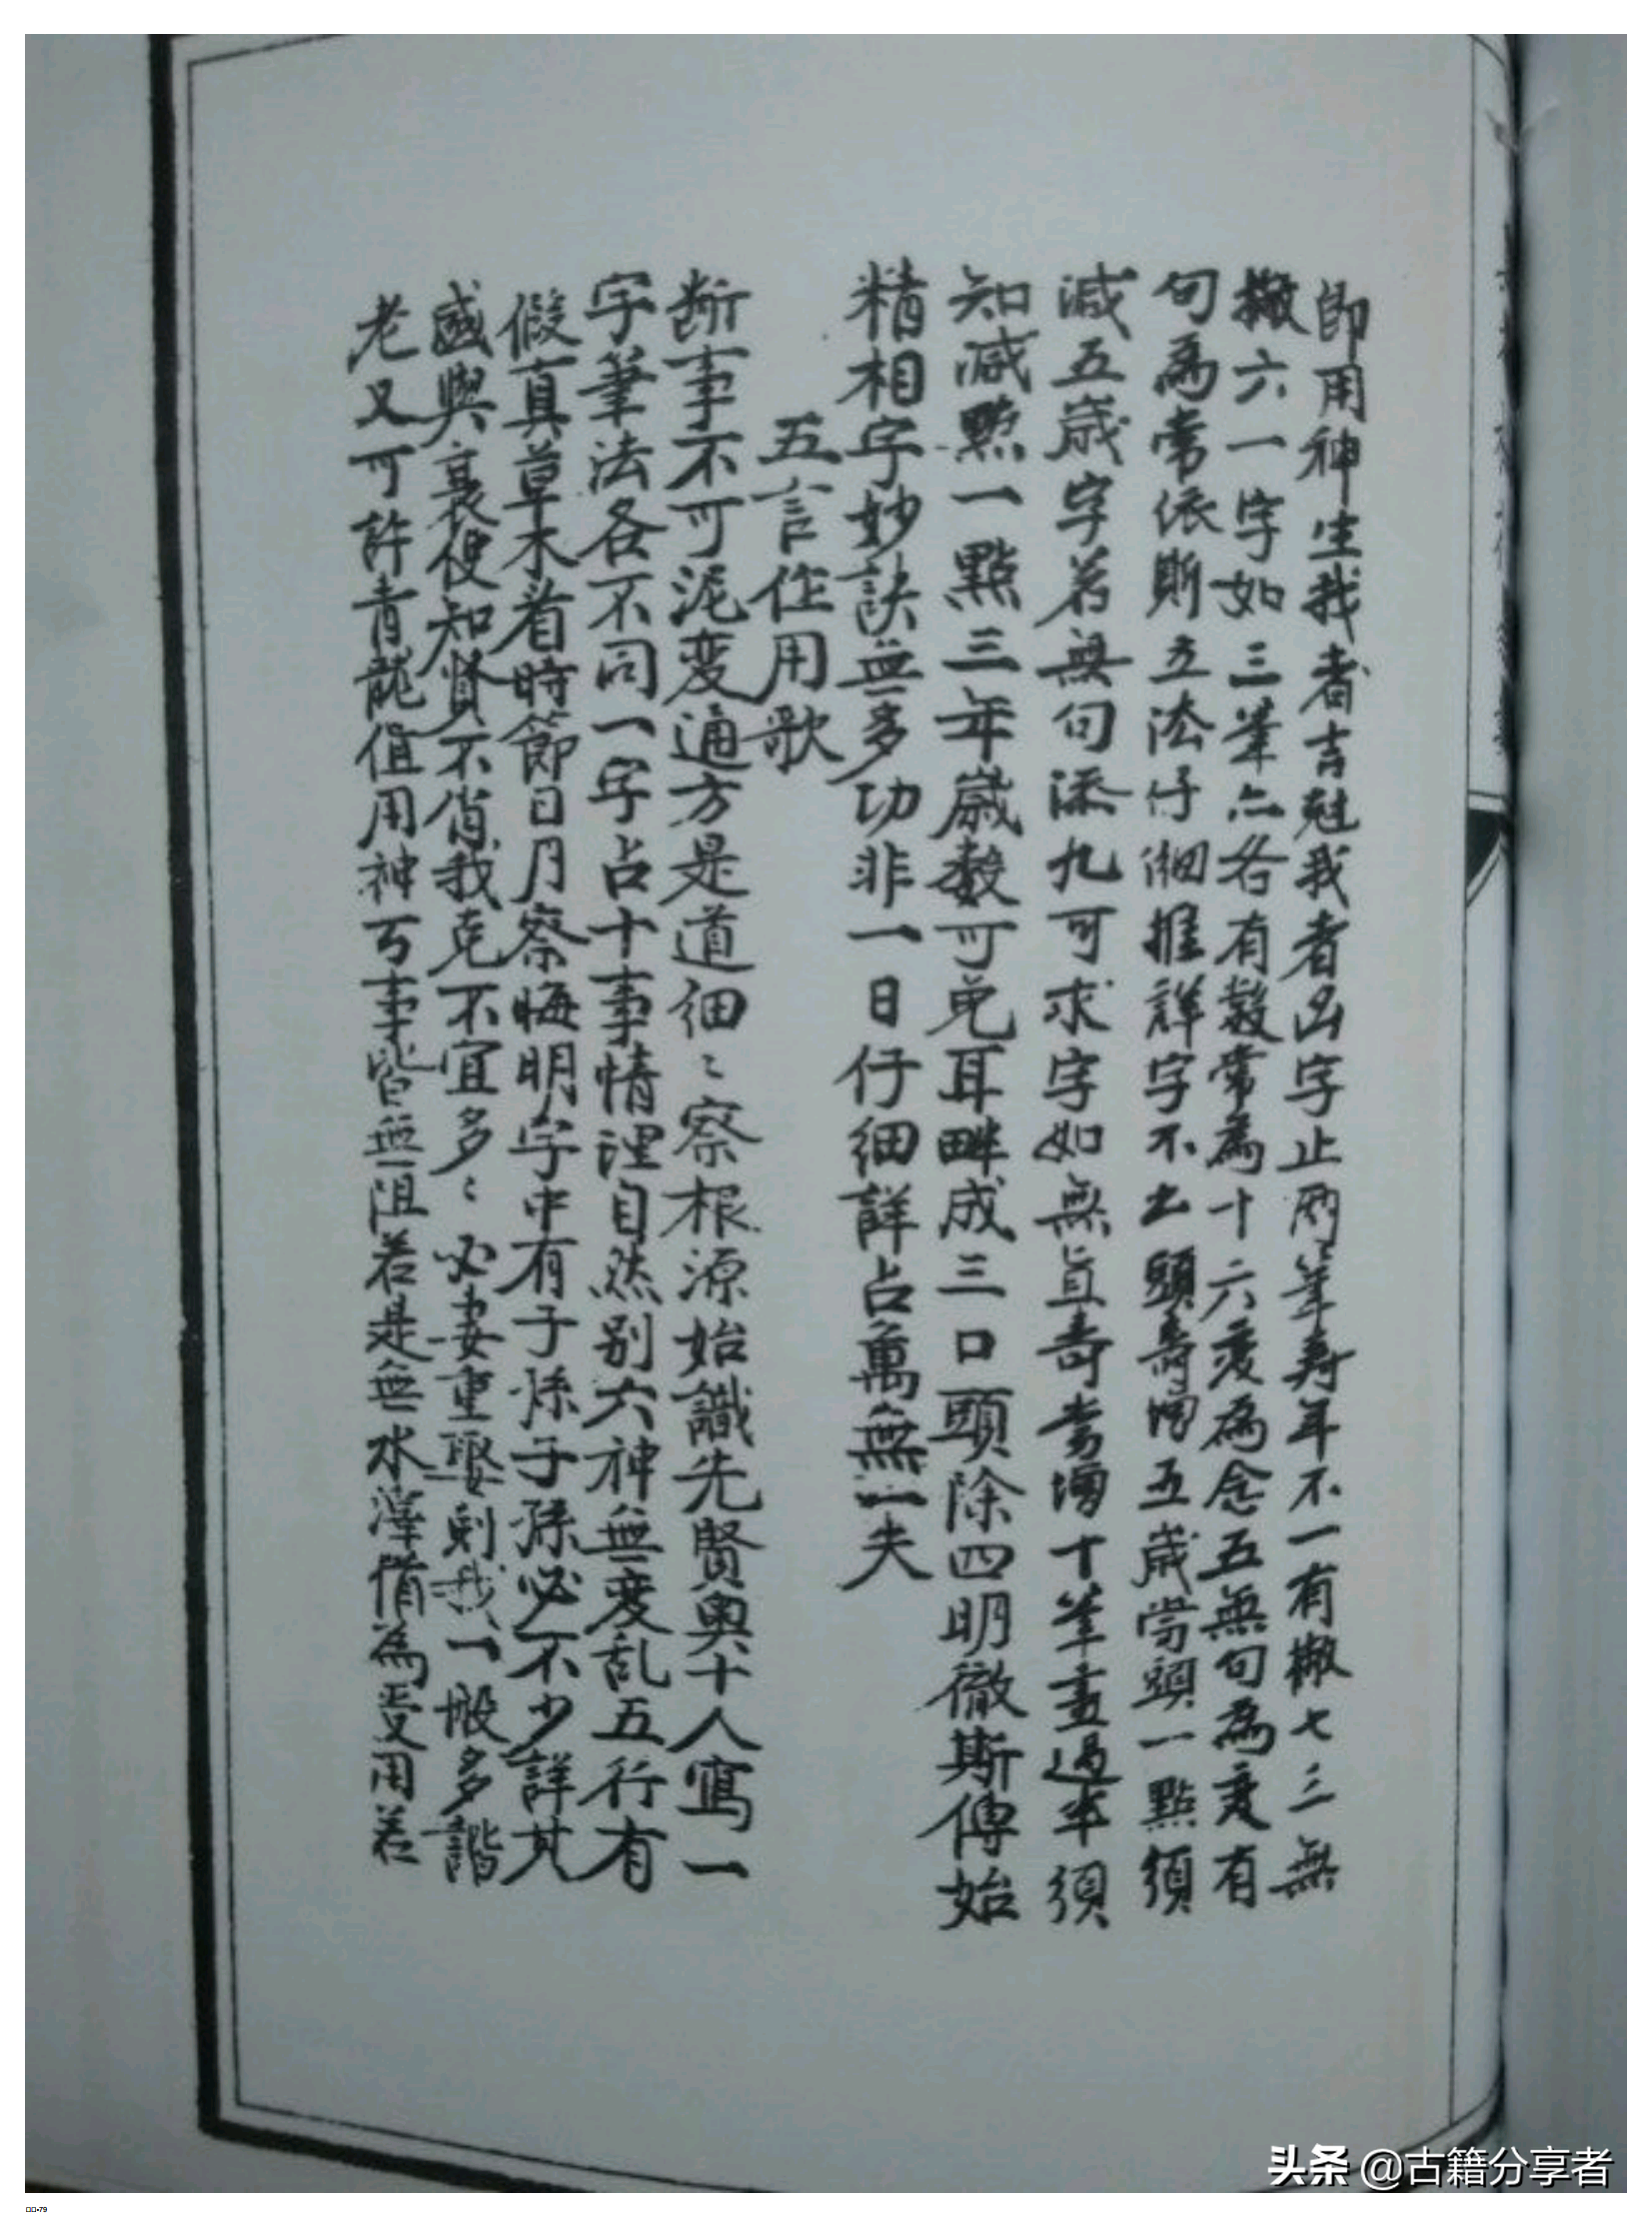 即用神生我者吉尅我者凶字止兩筆壽年不一有撇七三無
撇六一字如三筆亦各有数常為十六变為念五無句為变有
句為常依斯立法仔細推詳字不出頭壽增五歲当頭一點須
減五歲字若無句添九可求字如無直壽当增十筆畫過半須
知減點一點三年歲数可免耳畔成三口頭除四明徹斯傳始
精相字妙訣無多功非一日仔細詳占萬無一失
五言作用歌
断事不可泥变通方是道細〻察根源始識先賢奥十人寫一
字筆法各不同一字占十事情理自然别六神無变乱五行有
假真草木看時節日月察晦明字中有子孫子孫必不少詳其
盛與衰便知賢不俏我克不宜多〻必妻重娶剋我一般多諧
老又可許青龍值用神万事皆無阻若是無水澤借為受用若
头条 @古籍分享者
79